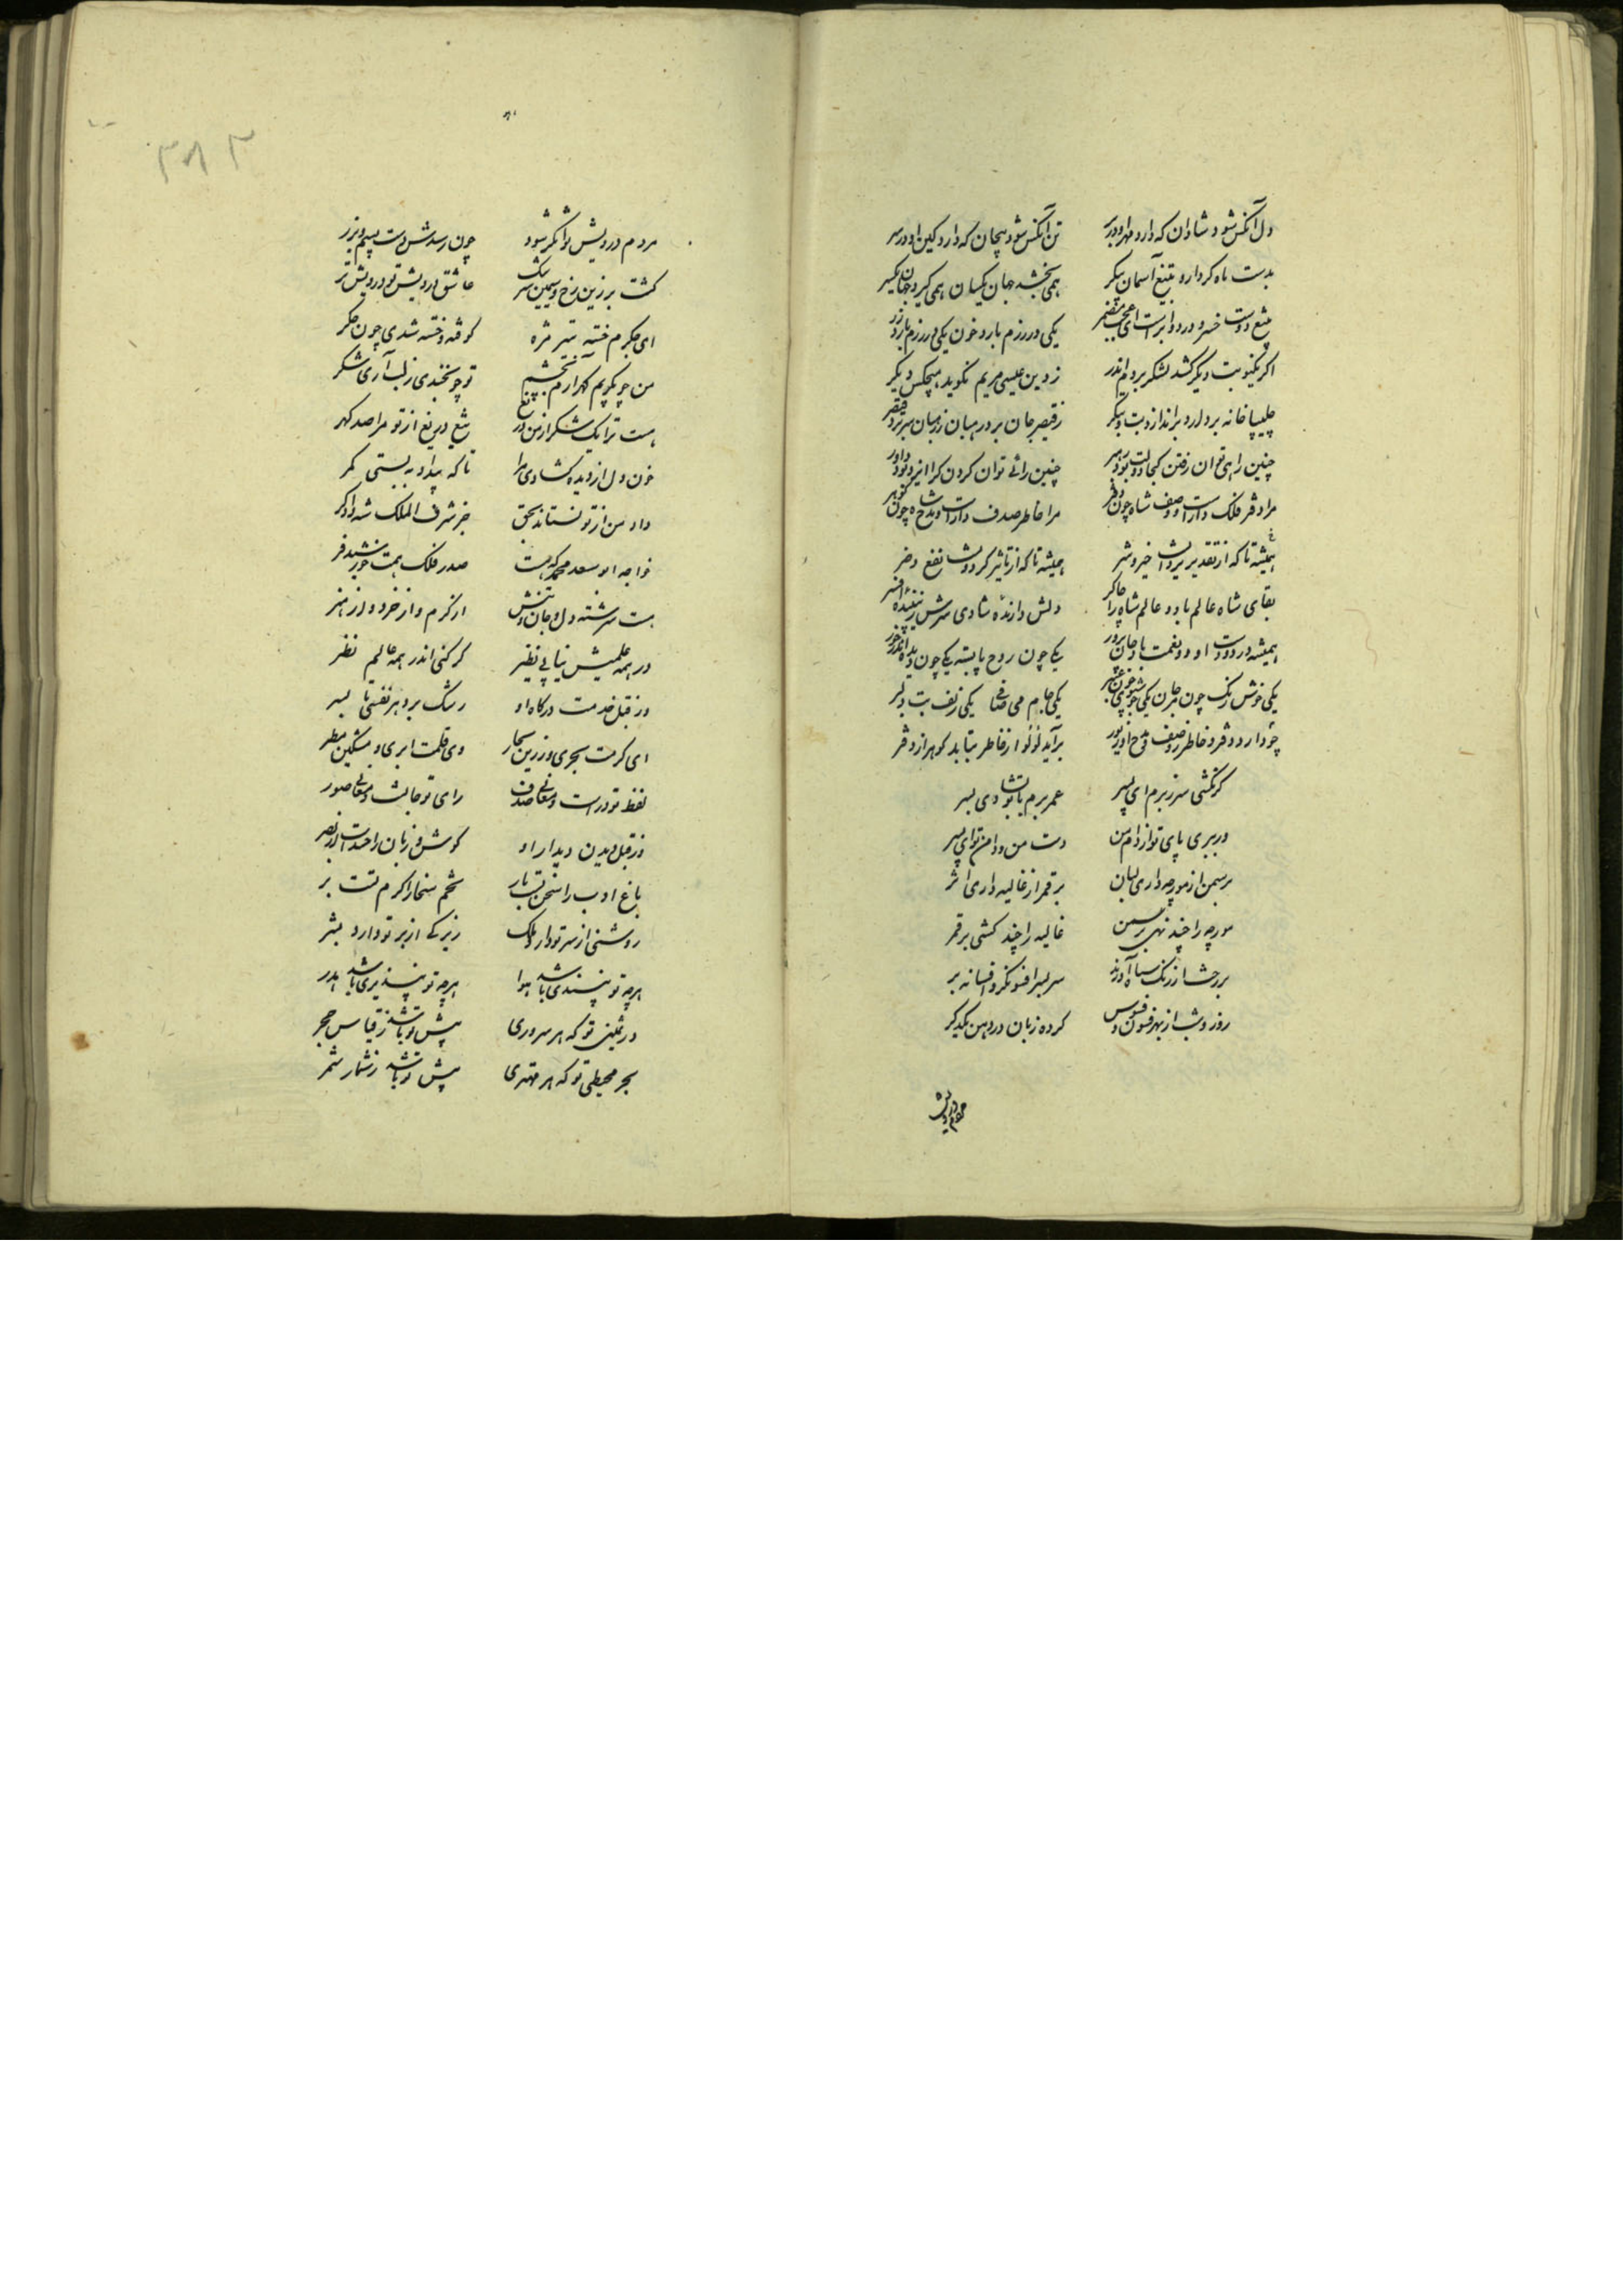 دل آنکس شود شادان که دارد مهر او در بر تن آنکس شود پیچان که دارد کین او در سر
بدست ماه کردار و بتیغ آسمان پیکر همی بخشد جهان یکسان همی گیرد جهان یکسر
تیغ و دست خسرو در دو ابرست ای عجب مضمر یکی در رزم بارد خون یکی در بزم بارد زر
اگر یکنوبت دیگر کشد لشکر بروم اندر ز دین عیسی مریم نگوید هیچکس دیگر
چلیپا خانه بردارد براندازد بت و بتگر ز قیصر جان برد رهبان ز رهبان سر برد قیصر
چنین راهی توان رفتن کجا دولت بود رهبر چنین رائے توان کردن کرا ایزد بود داور
مرا دفتر فلک دارست و وصف شاه چون اختر مرا خاطر صدف دارست و مدح شاه چون گوهر
همیشه تا که از تقدیر یزدانست خیر و شر همیشه تا که از تاثیر گردونست نفع و ضر
بقای شاه عالم باد و عالم شاه را چاکر دلش دارنده شادی سرش زیبنده افسر
همیشه در دو دست او دو نعمت باد جان پرور یکی چون روح بایسته یکی چون دیده اندر خور
یکی خوش رنگ چون مرجان یکی خوشبوی چون عنبر یکی جام می صافی یکی زلف بت دلبر
چو دارد دفتر و خاطر ز وصف و مدح او زیور برآید لؤلؤ از خاطر بتابد گوهر از دفتر
گر نکشی سر ز برم ای پسر عمر برم با تو بشادی بسر
ور ببری پای تو از دام من دست من و دامن تو ای پسر
بر سمن از مورچه داری نشان بر قمر از غالیه داری اثر
مورچه را چند نهی بر سمن غالیه را چند کشی بر قمر
سر بسر افسونگر و افسانه بر
روز و شب از بهر فسون و فسوس کرده زبان در دهن یکدگر
مردم درویش
مردم درویش توانگر شود چون رسدش دست بسیم و بزر
گشت بزرین رخ و سیمین سرشک عاشق درویش تو درویش تر
ای جگرم خسته بتیر مژه کوفته و خسته شدی چون جگر
من چو بگریم گهر آرم بچشم تو چو بخندی ز لب آری شکر
هست ترا یک شکر از من دریغ نیست دریغ از تو مرا صد گهر
خون دل از دیده گشادی مرا تا که به بیداد به بستی کمر
داد من از تو نستاند بحق جز شرف الملک شه دادگر
خواجه ابو سعد محمد که هست صدر فلک همت خورشید فر
هست سرشته دل و جان و تنش از کرم و از خرد و از هنر
در همه علمیش نیابی نظیر گر کنی اندر همه عالم نظر
وز قبل خدمت درگاه او رشک برد هر نفسی پا بسر
ای کرمت بحری و زرین بخار وی قلمت ابری و مشکین مطر
لفظ تو درست و معانی صدف رای تو جانست و معالی صور
وز قبل دیدن دیدار او گوش و زبان را حسدست از بصر
باغ ادب را سخن تست بار تخم سخا را کرم تست بر
روشنی از سر تو دارد ملک زیرکے از بر تو دارد بشر
هرچه تو بپسندی باشد هوا هرچه تو بپذیری باشد هدر
در ثمینی تو که هر سروری پیش تو باشد ز قیاس حجر
بحر محیطی تو که هر مهتری پیش تو باشد ز شمار شمر